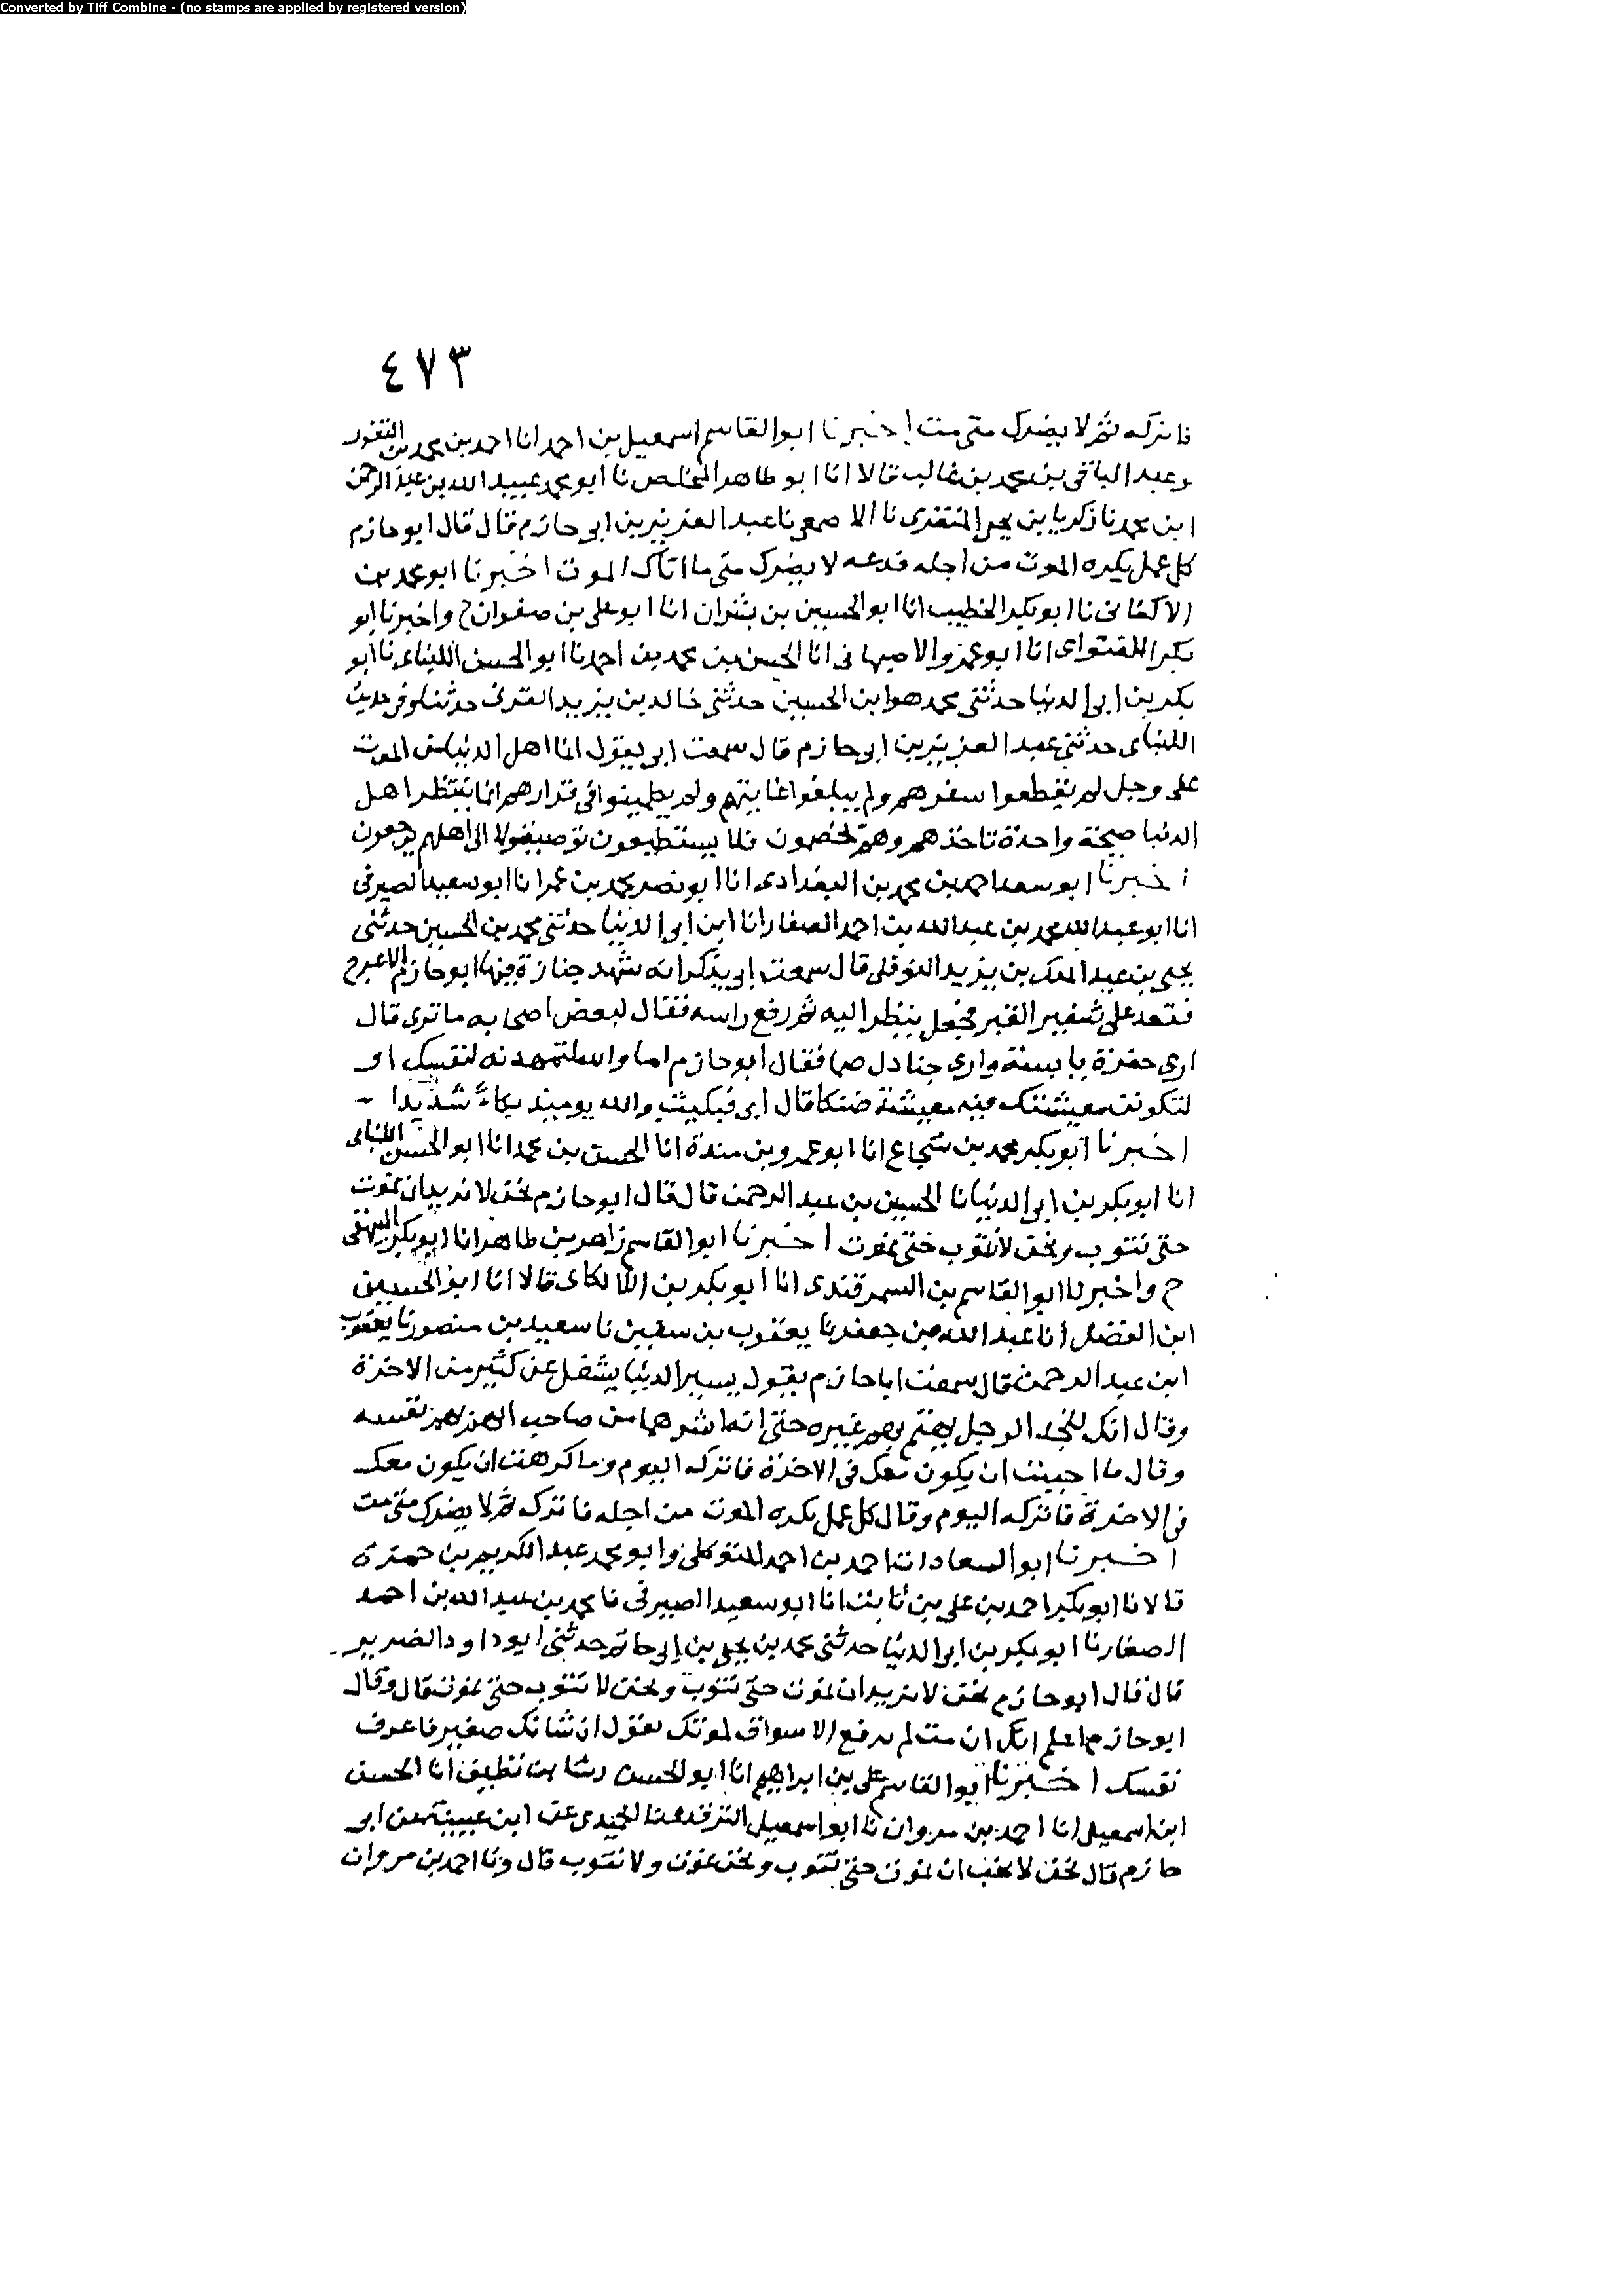 Converted by Tiff Combine - (no stamps are applied by registered version)
٤٧٣
فاتركه ثم لا يضرك متى مت اخبرنا ابو القاسم اسمعيل بن احمد انا احمد بن محمد بن النقور
وعبد الباقى بن محمد بن غالب قالا انا ابو طاهر المخلص نا ابو محمد عبيد الله بن عبد الرحمن
ابن محمد نا زكريا بن يحيى المنقرى نا الاصمعى نا عبد العزيز بن ابى حازم قال قال ابو حازم
كل عمل يكره الموت من اجله فدعه لا يضرك متى ما اتاك الموت اخبرنا ابو محمد بن
الاكفانى نا ابو بكر الخطيب انا ابو الحسين بن بشران انا ابو على بن صفوان ح واخبرنا ابو
بكر اللفتوانى انا ابو عمرو الاصبهانى انا الحسن بن محمد بن احمد نا ابو الحسن اللنبانى نا ابو
بكر بن ابى الدنيا حدثنى محمد هو ابن الحسين حدثنى خالد بن يزيد القرنى حدثنا وفى حديث
اللنبانى حدثنى عبد العزيز بن ابى حازم قال سمعت ابى يقول انما اهل الدنيا من الموت
على وجل لم يقطعوا سفرهم ولم يبلغوا غايتهم ولم يطمينوا فى قرارهم انما ينتظر اهل
الدنيا صيحة واحدة تاخذهم وهم يخصمون فلا يستطيعون توصية ولا الى اهلهم يرجعون
اخبرنا ابو سعد احمد بن محمد بن البغدادى انا ابو نصر محمد بن عمر انا ابو سعيد الصيرفى
انا ابو عبد الله محمد بن عبد الله بن احمد الصفار انا ابن ابى الدنيا حدثنى محمد بن الحسين حدثنى
يحيى بن عبد الملك بن يزيد النوفلى قال سمعت ابى يذكر انه شهد جنازة فيها ابو حازم الاعرج
فقعد على شفير القبر فجعل ينظر اليه ثم رفع راسه فقال لبعض اصحابه ما ترى قال
ارى حفرة يابسة وارى جنادل صما فقال ابو حازم اما والله لتمهدنه لنفسك او
لتكونن معيشتك فيه معيشة ضنكا قال ابى فبكيت والله يوميذ بكاءً شديدا
اخبرنا ابو بكر محمد بن شجاع انا ابو عمرو بن مندة انا الحسن بن محمد انا ابو الحسن اللنبانى
انا ابو بكر بن ابى الدنيا نا الحسين بن عبد الرحمن قال قال ابو حازم نحن لا نريد ان نموت
حتى نتوب ونحن لا نتوب حتى نموت اخبرنا ابو القاسم زاهر بن طاهر انا ابو بكر البيهقى
ح واخبرنا ابو القاسم بن السمرقندى انا ابو بكر بن اللالكائى قالا انا ابو الحسين
ابن الفضل انا عبد الله بن جعفر نا يعقوب بن سفين نا سعيد بن منصور نا يعقوب
ابن عبد الرحمن قال سمعت ابا حازم يقول يسير الدنيا يشغل عن كثير من الاخرة
وقال انك لتجد الرجل يهتم بهم غيره حتى انه اشد هما من صاحب الهم بهم نفسه
وقال ما احببت ان يكون معك فى الاخرة فاتركه اليوم وما كرهت ان يكون معك
فى الاخرة فاتركه اليوم وقال كل عمل يكره الموت من اجله فاتركه ثم لا يضرك متى مت
اخبرنا ابو السعادات احمد بن احمد المتوكلى وابو محمد عبد الكريم بن حمزة
قالا نا ابو بكر احمد بن على بن ثابت انا ابو سعيد الصيرفى نا محمد بن عبد الله بن احمد
الصفار نا ابو بكر بن ابى الدنيا حدثنى محمد بن يحيى بن ابى حاتم حدثنى ابو داود الضرير
قال قال ابو حازم نحن لا نريد ان نموت حتى نتوب ونحن لا نتوب حتى نموت قال وقال
ابو حازم اعلم انك ان مت لم ترفع الاسواق لموتك يقول ان شانك صغير فاعرف
نفسك اخبرنا ابو القاسم على بن ابراهيم انا ابو الحسن رشا بن نظيف انا الحسن
ابن اسمعيل انا احمد بن مروان نا ابو اسمعيل الترمذى نا الحميدى عن ابن عيينة عن ابو
حازم قال نحن لا نحب ان نموت حتى نتوب ونحن نموت ولا نتوب قال ونا احمد بن مروان